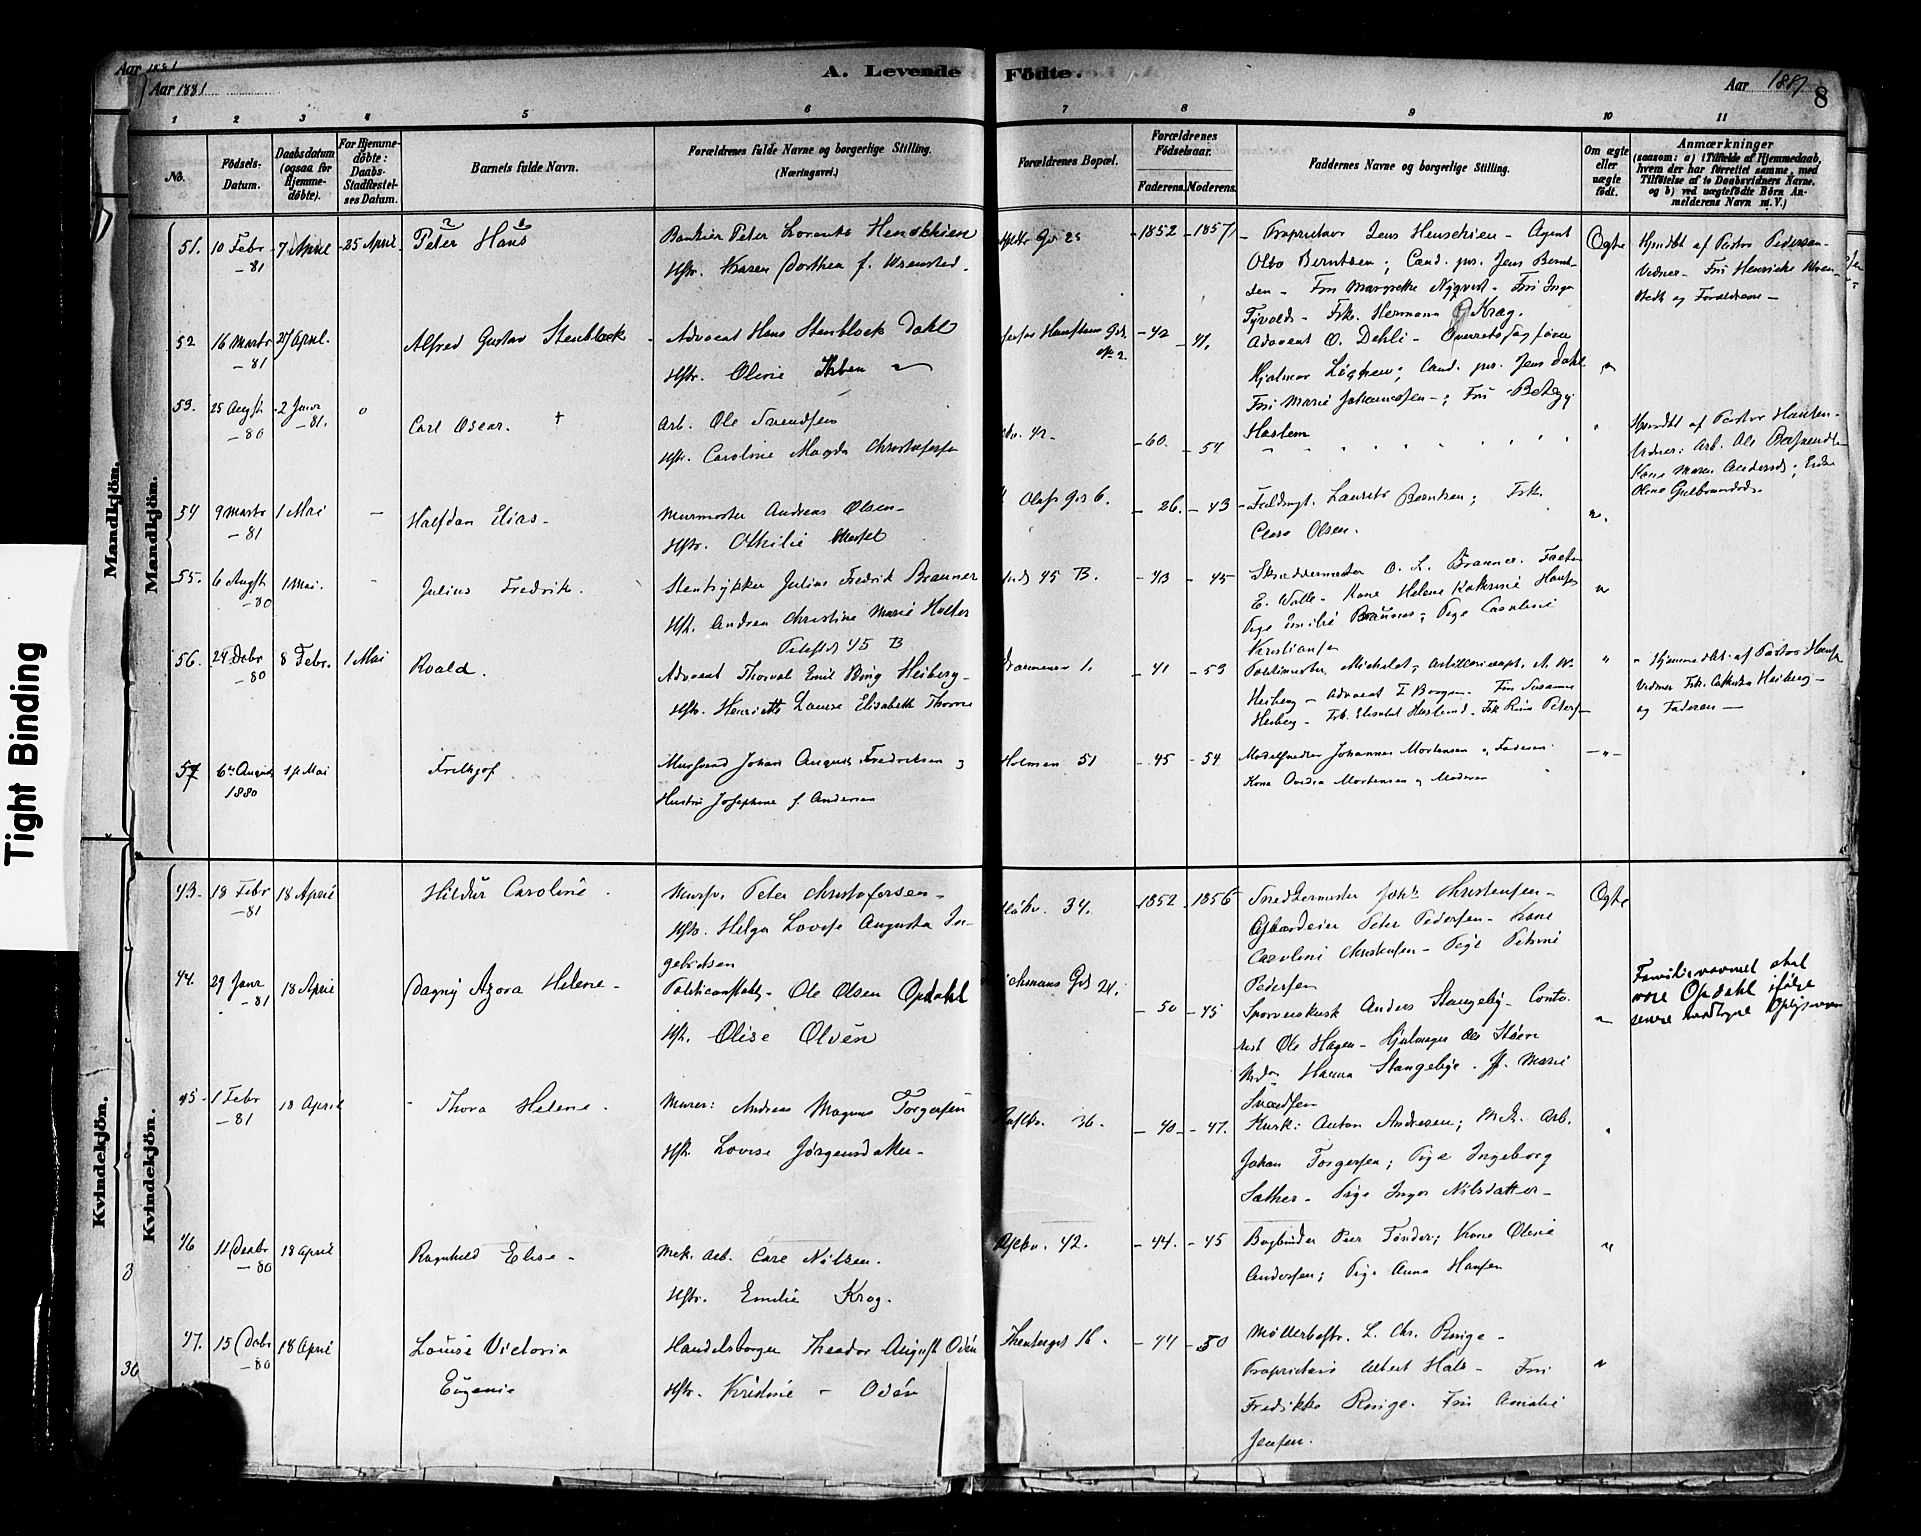 Aar 1881
A. Levende Födte.
Aar 1881
8
1 2 3 4 5 6 7 8 9 10 11
No.
Födsels-Datum.
Daabsdatum (ogsaa for Hjemmedöbte).
For Hjemmedöbte: Daabs-Stadfæstelses Datum.
Barnets fulde Navn.
Forældrenes fulde Navne og borgerlige Stilling. (Næringsvei.)
Forældrenes Bopæl.
Forældrenes Födselsaar.
Faderens. Moderens.
Faddernes Navne og borgerlige Stilling.
Om ægte eller uægte födt.
Anmærkninger
(saasom: a) i Tilfælde af Hjemmedaab, hvem der har forrettet samme, med Tilföielse af to Daabsvidners Navne, og b) ved uægtefödte Börn Anmelderens Navn m. V.)
Mandkjön.
51. 10 Febr 7 April 25 April Peter Hans
-81
Bankier Peter Lorents Henschien
Hstr. Karen Dorthea f. Wrensted.
-1852 -1857
Proprietær Jens Henschien - Agent
Olbo Berntsen; Cand. jur. Jens Bernt-
sen - Fru Margrethe Nyqvist - Fru Inga
Tyvolds - Frk. Hermana Krag.
Ægte
Hjmdbt af Pastor Pedersen-
Vidner - Fru Henrike Wren-
stedt og Forældrene -
52 16 Marts 27 April. Alfred Gustav Stenblock
-81
Advocat Hans Stenblock Dahl
Hstr. Olivie Ibsen
-42 -41,
Advocat O. Dehli - Overretssagfører
Hjalmar Løchen; Cand. jur. Jens Dahl
Fru Marie Johannesen -; Fru Betzy
Haslem
53. 25 Augst 2 Janr Carl Oscar. +
-80 -81.
Arb. Ole Svendsen
Hstr. Caroline Magda Christofersen
42. -60. -54
Hjmdbt af Pastor Hansen-
54 9 Marts 1 Mai Halfdan Elias-
-81
Murmester Andreas Olsen-
Hstr. Othilie
Olafs Gd 6. -26. -43
Laurits Berntsen; Frk.
Clara Olsen.
55. 6 Augst 1 Mai. Julius Fredrik.
-80
Stentrykker Julius Fredrik Brauner
Hst. Andrea Christine Marie Holter
45 B
45 B. -43 -45
Skræddermester O. L. Brauner. Fader
E. Wolle - Kone Helene Kathrine Hansen
Pige Emilie Brauner; Pige Caroline
Kristiansen
56. 29 Debr 8 Febr. 1 Mai Roald.
-80
Advocat Thorval Emil Bing Heiberg-
Hstr. Henriette Louise Elisabeth Thorne
1. -41 -53
Postmester Michelet, Artillericapt. A. W.
Heiberg - Advocat I Borgen. Fru Susanne
Heiberg -
Hjemmedbt. af Pastor Hansen
Vidner Frk. Cathrka Heiberg -
og Faderen -
57 6te August 1ste Mai Frithjof
1880
Mursvend Johan August Fredriksen og
Hustru Josephine f. Andersen
Holmen 51 -45 -54
Modelsnedker Johannes Mortensen og Faderen.
Kone Ovedia Mortensen og Moderen
Kvindekjön.
43. 18 Febr 18 April Hildur Caroline.
-81
Mursv. Peter Christofersen -
Hstr. Helga Lovise Augusta In-
gebretsen
34. -1852 -1856
Snedkermester Johs Christensen -
Gjæstgeier Peter Pedersen - Kone
Caroline Christensen - Pige Petrine
Pedersen
Ægte
44. 29 Janr 18 April Dagny Azora Helene -
-81
Politiconstabl. Ole Olsen Opdahl
Hst. Olise Olsen
Gd 24, -50 -45
Sporveiskusk Anders Stangeby - Conto-
rist Ole Hagen - Hjulmager Ole Støen
Hanna Stangebye. Marie
Svendsen
Familienavnet skal
være Opdahl ifølge
senere modtagne Oplysninger
45 - 1 Febr 18 April Thora Helene.
-81
Murer: Andreas Magnus Torgersen
Hst. Lovise Jørgensdatter -
36. -40 - -47.
Kusk: Anton Andresen; Arb.
Johan Torgersen; Pige Ingeborg
Sæther - Pige Inger Nilsdatter -
46 11 Decbr 18 April Ragnhild Elise -
-80
Mek. Arb. Carl Nilsen.
Hstr. Emilie Krog.
42. -44. -45
Bogbinder Peer Tønder; Kone Olivia
Andersen; Pige Anna Hansen
47. 15 Debr 18 April Louise Victoria
-80 Eugenie
Handelsborger Theodor August Odén
Hstr. Kristine - Odén
16. -44 -50
Møllerbestr. L. Chr. Ringe -
Proprietær Albert Hals - Fru
Fredikke Ringe. Fru Amalie
Jensen.
Tight Binding